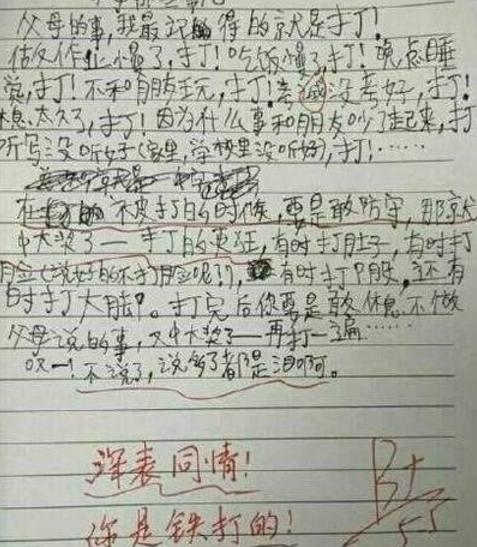 父母的事,我最记得的就是打!
做作业慢了,打!吃饭慢了,打!晚点睡
觉,打!不和朋友玩,打!考试没考好,打!
休息太久了,打!因为什么事和朋友吵了起来,打
听写没听好(家里,学校里没听好),打!……
在 不皮打的时候,要是敢防守,那就
中大奖了——打的更狂,有时打肚子,有时打
脸(说好的不打脸呢?),有时打腿,还有
时打大腿。打完后你要是敢休息不做
父母说的事,又中大奖了——再打一遍……
哎—!不说了,说多了都是泪啊。
深表同情!
你是铁打的!
B+